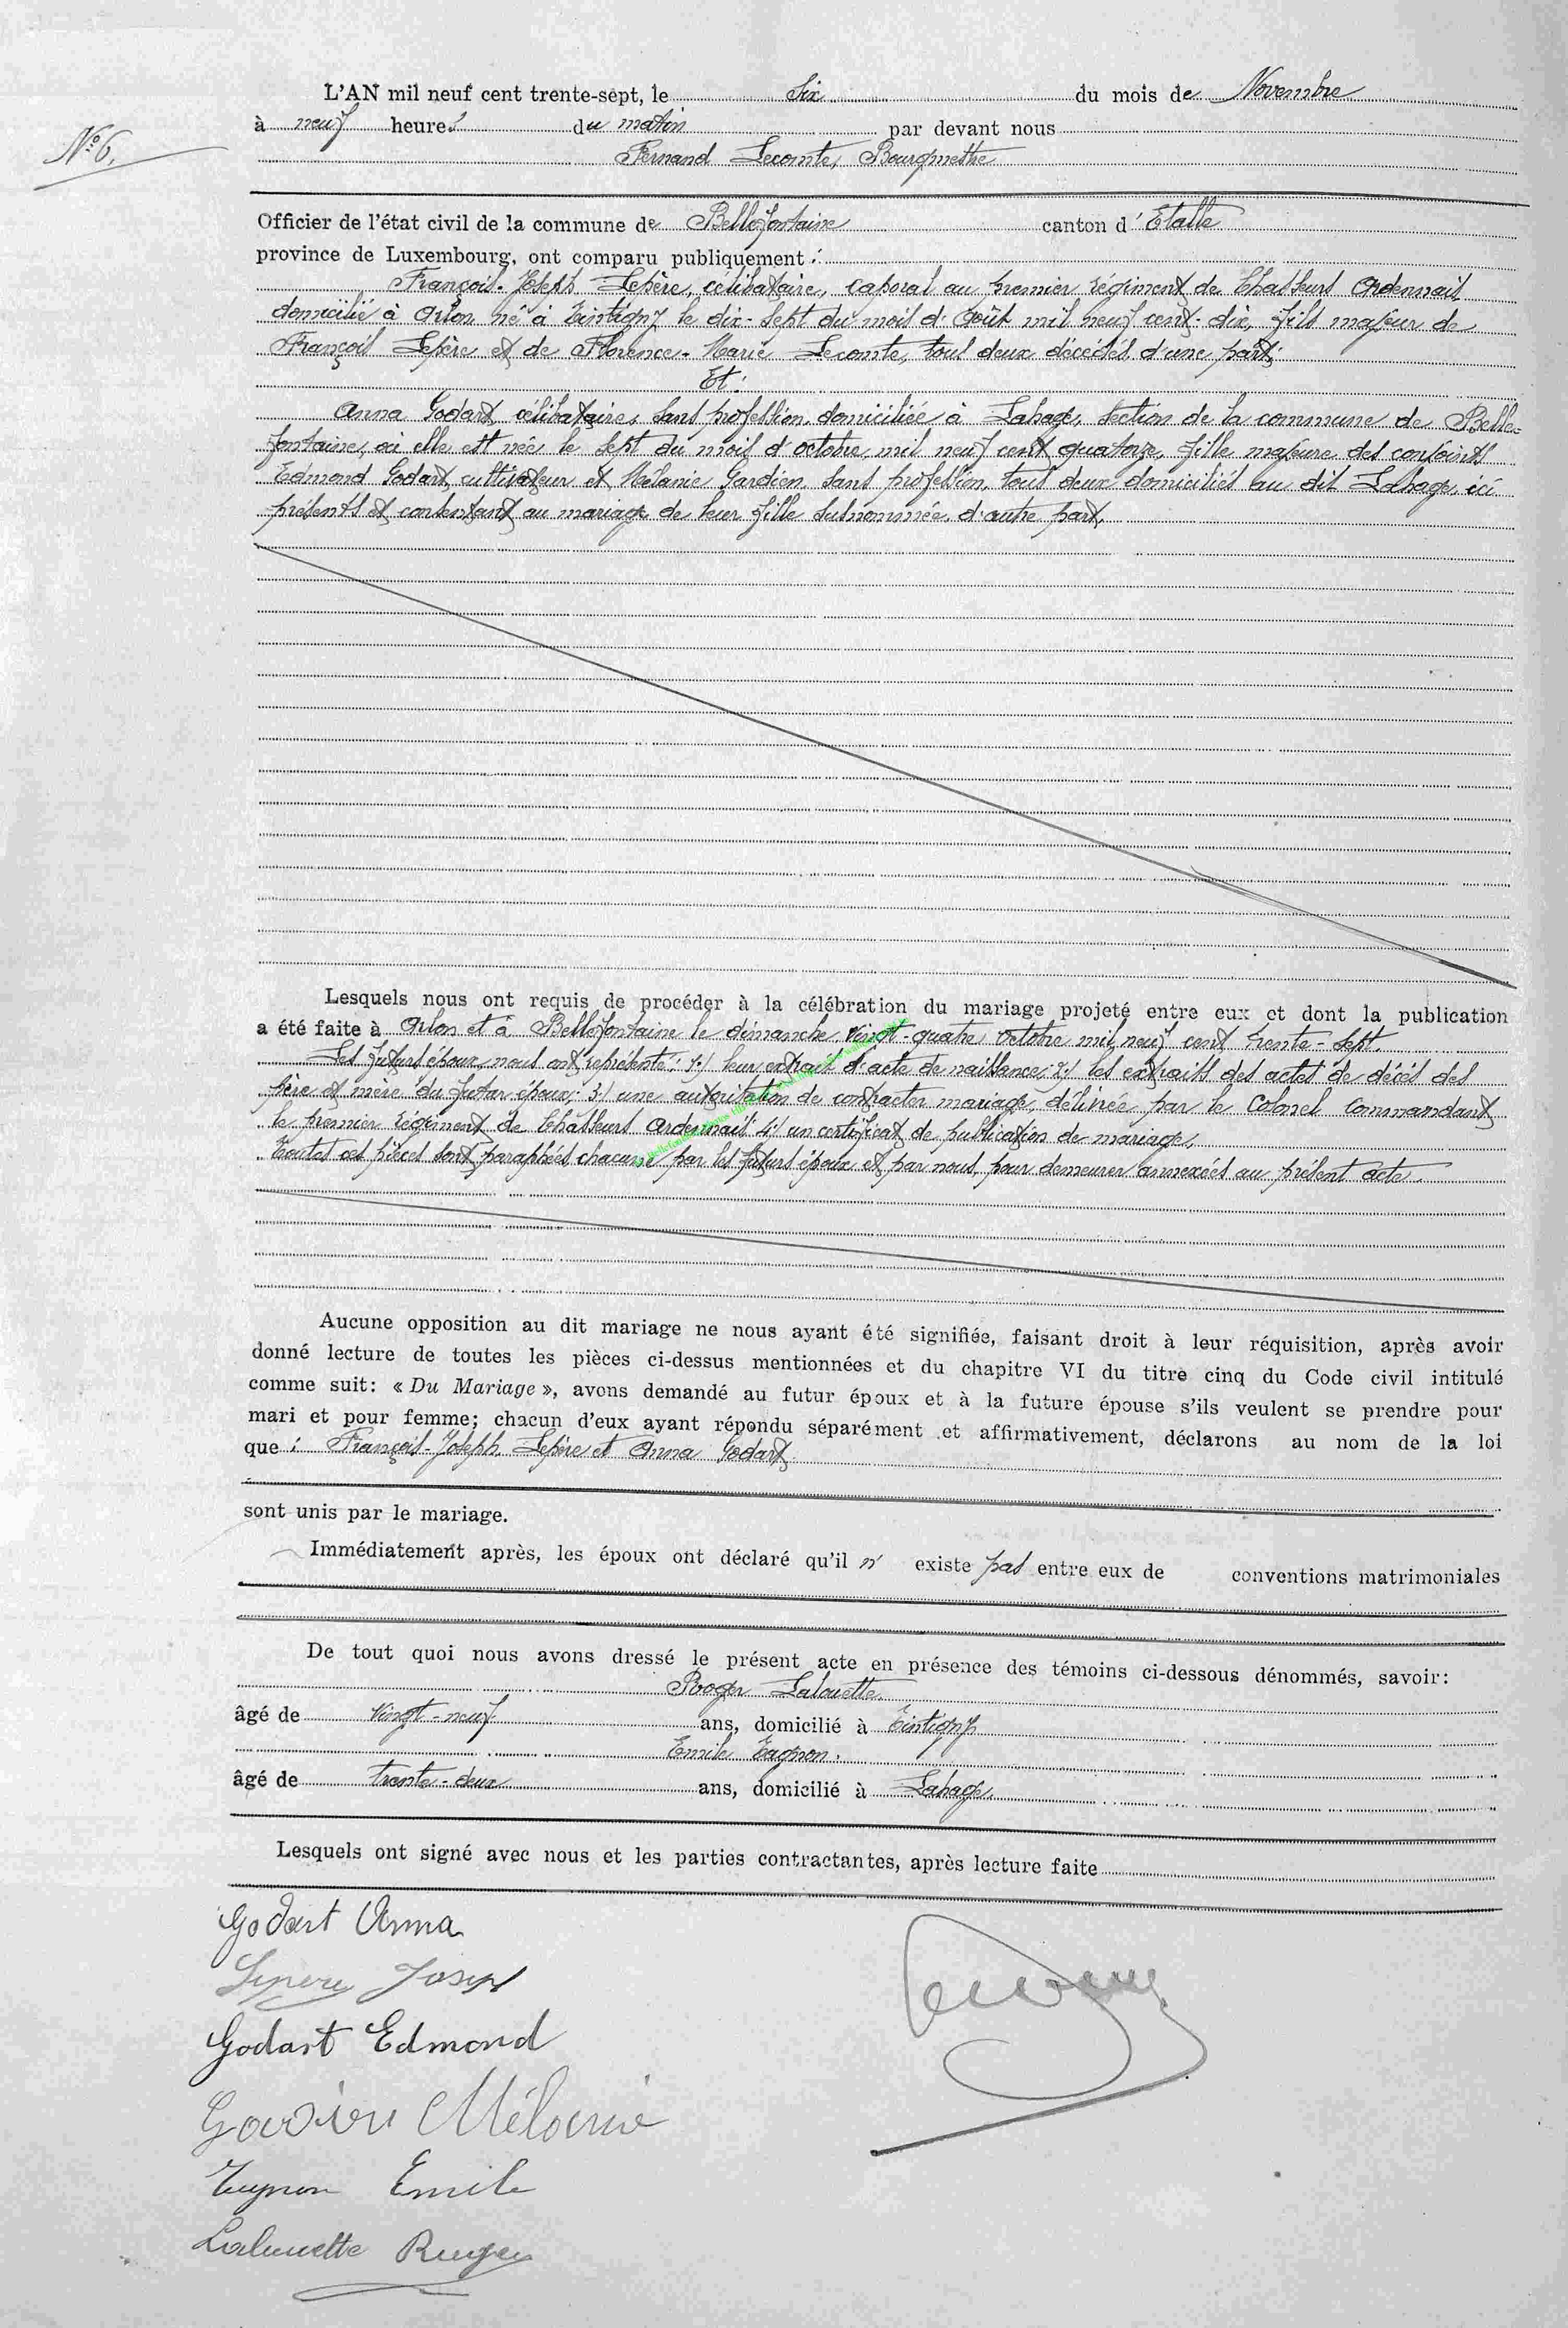 L'AN mil neuf cent trente-sept, le Six du mois de Novembre
à neuf heures du matin par devant nous
N° 6.
Fernand Lecomte, Bourgmestre
Officier de l'état civil de la commune de Bellefontaine canton d'Etalle
province de Luxembourg, ont comparu publiquement :
François-Joseph Lepère, célibataire, caporal au premier régiment de Chasseurs Ardennais
domicilié à Arlon né à Tintigny le dix-sept du mois d'Août mil neuf cent-dix, fils majeur de
François Lepère et de Florence-Marie Lecomte, tous deux décédés d'une part;
Et:
Anna Godart, célibataire, sans profession, domiciliée à Lahage, section de la commune de Belle-
fontaine, où elle est née le sept du mois d'octobre, mil neuf cent quatorze, fille majeure des conjoints
Edmond Godart, cultivateur et Mélanie Gardien, sans profession, tous deux domiciliés au dit Lahage, ici
présents et consentant au mariage de leur fille susnommée, d'autre part,
Lesquels nous ont requis de procéder à la célébration du mariage projeté entre eux et dont la publication
a été faite à Arlon et à Bellefontaine le dimanche vingt-quatre octobre mil neuf cent trente-sept.
Les futurs époux nous ont représenté: 1°) leur extrait d'acte de naissance; 2°) les extraits des actes de décès des
père et mère du futur époux; 3°) une autorisation de contracter mariage, délivrée par le Colonel Commandant
le premier régiment de Chasseurs Ardennais 4°) un certificat de publication de mariage.
Toutes ces pièces sont paraphées chacune par les futurs époux et par nous, pour demeurer annexées au présent acte.
Aucune opposition au dit mariage ne nous ayant été signifiée, faisant droit à leur réquisition, après avoir
donné lecture de toutes les pièces ci-dessus mentionnées et du chapitre VI du titre cinq du Code civil intitulé
comme suit: « Du Mariage », avons demandé au futur époux et à la future épouse s'ils veulent se prendre pour
mari et pour femme; chacun d'eux ayant répondu séparément et affirmativement, déclarons au nom de la loi
que : François-Joseph Lepère et Anna Godart
sont unis par le mariage.
Immédiatement après, les époux ont déclaré qu'il n' existe pas entre eux de conventions matrimoniales
De tout quoi nous avons dressé le présent acte en présence des témoins ci-dessous dénommés, savoir:
Roger Lalouette
âgé de vingt-neuf ans, domicilié à Tintigny
Emile Tagnon.
âgé de trente-deux ans, domicilié à Lahage.
Lesquels ont signé avec nous et les parties contractantes, après lecture faite
Godart Anna
Lepère Joseph
Godart Edmond
Gardien Mélanie
Tagnon Emile
Lalouette Roger